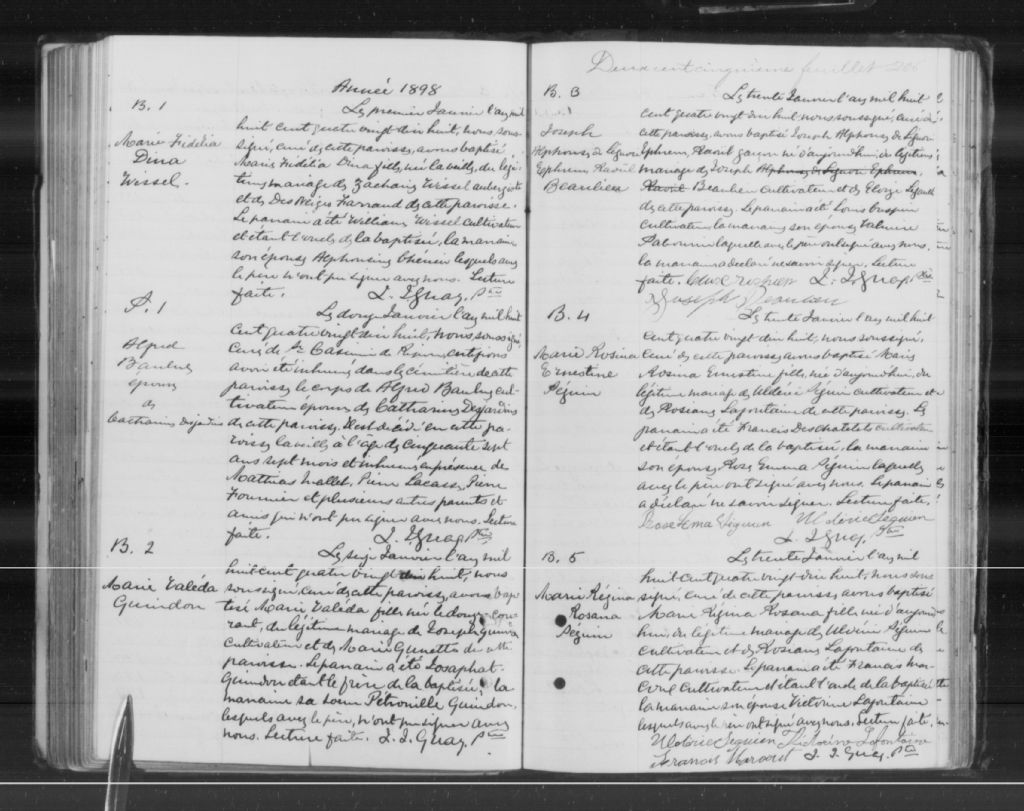 Année 1898
B. 1
Marie Fidélia
Dina
Wissel.
Le premier Janvier l'an mil
huit cent quatre vingt dix huit, nous sous-
signé, curé de cette paroisse, avons baptisé
Marie Fidélia Dina fille, née la veille, du légi-
time mariage de Zacharie Wissel aubergiste
et de Des Neiges Farrand de cette paroisse.
Le parrain a été William Wissel cultivateur
et étant l'oncle de la baptisée, la marraine
son épouse Alphonsine lesquels avec
le père n'ont pu signer avec nous. Lecture
faite. J. J. Guay, Ptre
S. 1
Alfred
Baulne
époux
de
Catharine Desjardins
Le douze Janvier l'an mil huit
cent quatre vingt dix huit, nous, soussigné,
Curé de St Casimir de Ripon, certifions
avoir été inhumé dans le cimetière de cette
paroisse le corps de Alfred Baulne cul-
tivateur époux de Catharine Desjardins
de cette paroisse. Il est décédé en cette pa-
roisse la veille à l'âge de cinquante sept
ans sept mois et inhumé en présence de
Matthias Mallet, Pierre Lacasse, Pierre
Fournier et plusieurs autres parents et
amis qui n'ont pu signer avec nous. Lecture
faite. J. J. Guay, Ptre
B. 2
Marie Valéda
Guindon
Le seize Janvier l'an mil
huit cent quatre vingt dix huit, nous
soussigné, curé de cette paroisse, avons bap-
tisé Marie Valéda fille née le douze cou-
rant, du légitime mariage de Joseph Guindon
Cultivateur et de Marie Guinette de cette
paroisse. Le parrain a été Josaphat
Guindon étant le frère de la baptisée, la
marraine sa soeur Pétronille Guindon,
lesquels avec le père, n'ont pu signer avec
nous. Lecture faite. J. J. Guay, Ptre
Deux cent cinquième feuillet
B. 3
Joseph
Alphonse de Liguori
Ephrem Raoul
Beaulieu
Le trente Janvier l'an mil huit
cent quatre vingt dix huit, nous soussigné, curé de
cette paroisse, avons baptisé Joseph Alphonse de Liguori
Ephrem Raoul garçon né d'aujourd'hui, du légitime
mariage de Joseph Alphonse de Liguori Ephrem
Raoul Beaulieu Cultivateur et de Eloïze
de cette paroisse. Le parrain a été Louis
Cultivateur la marraine son épouse
laquelle avec le père ont signé avec nous.
la marraine a déclaré ne savoir signer. Lecture
faite. J. J. Guay, Ptre
Joseph Beaulieu
B. 4
Marie Rosina
Ernestine
Séguin
Le trente Janvier l'an mil huit
cent quatre vingt dix huit, nous soussigné,
curé de cette paroisse avons baptisé Marie
Rosina Ernestine fille, née d'aujourd'hui, du
légitime mariage de Uldéric Séguin cultivateur et
de Rosiana Lafontaine de cette paroisse. Le
parrain a été Francis Deschatelets cultivateur
et étant l'oncle de la baptisée, la marraine
son épouse Rose Emma Séguin laquelle
avec le père ont signé avec nous. Le parrain
a déclaré ne savoir signer. Lecture faite.
Rose Ema Séguin Uldéric Seguin
J. J. Guay, Ptre
B. 5
Marie Régina
Rosana
Séguin
Le trente Janvier l'an mil
huit cent quatre vingt dix huit, nous sous-
signé, curé de cette paroisse avons baptisé
Marie Régina Rosana fille, née d'aujourd'
hui, du légitime mariage de Uldéric Séguin
cultivateur et de Rosiana Lafontaine de
cette paroisse. Le parrain a été Francis
Cultivateur et étant l'oncle de la baptisée
la marraine son épouse Victorine Lafontaine
lesquels avec le père ont signé avec nous. Lecture faite.
Uldéric Seguin Lafontaine
Francis J. J. Guay, Ptre